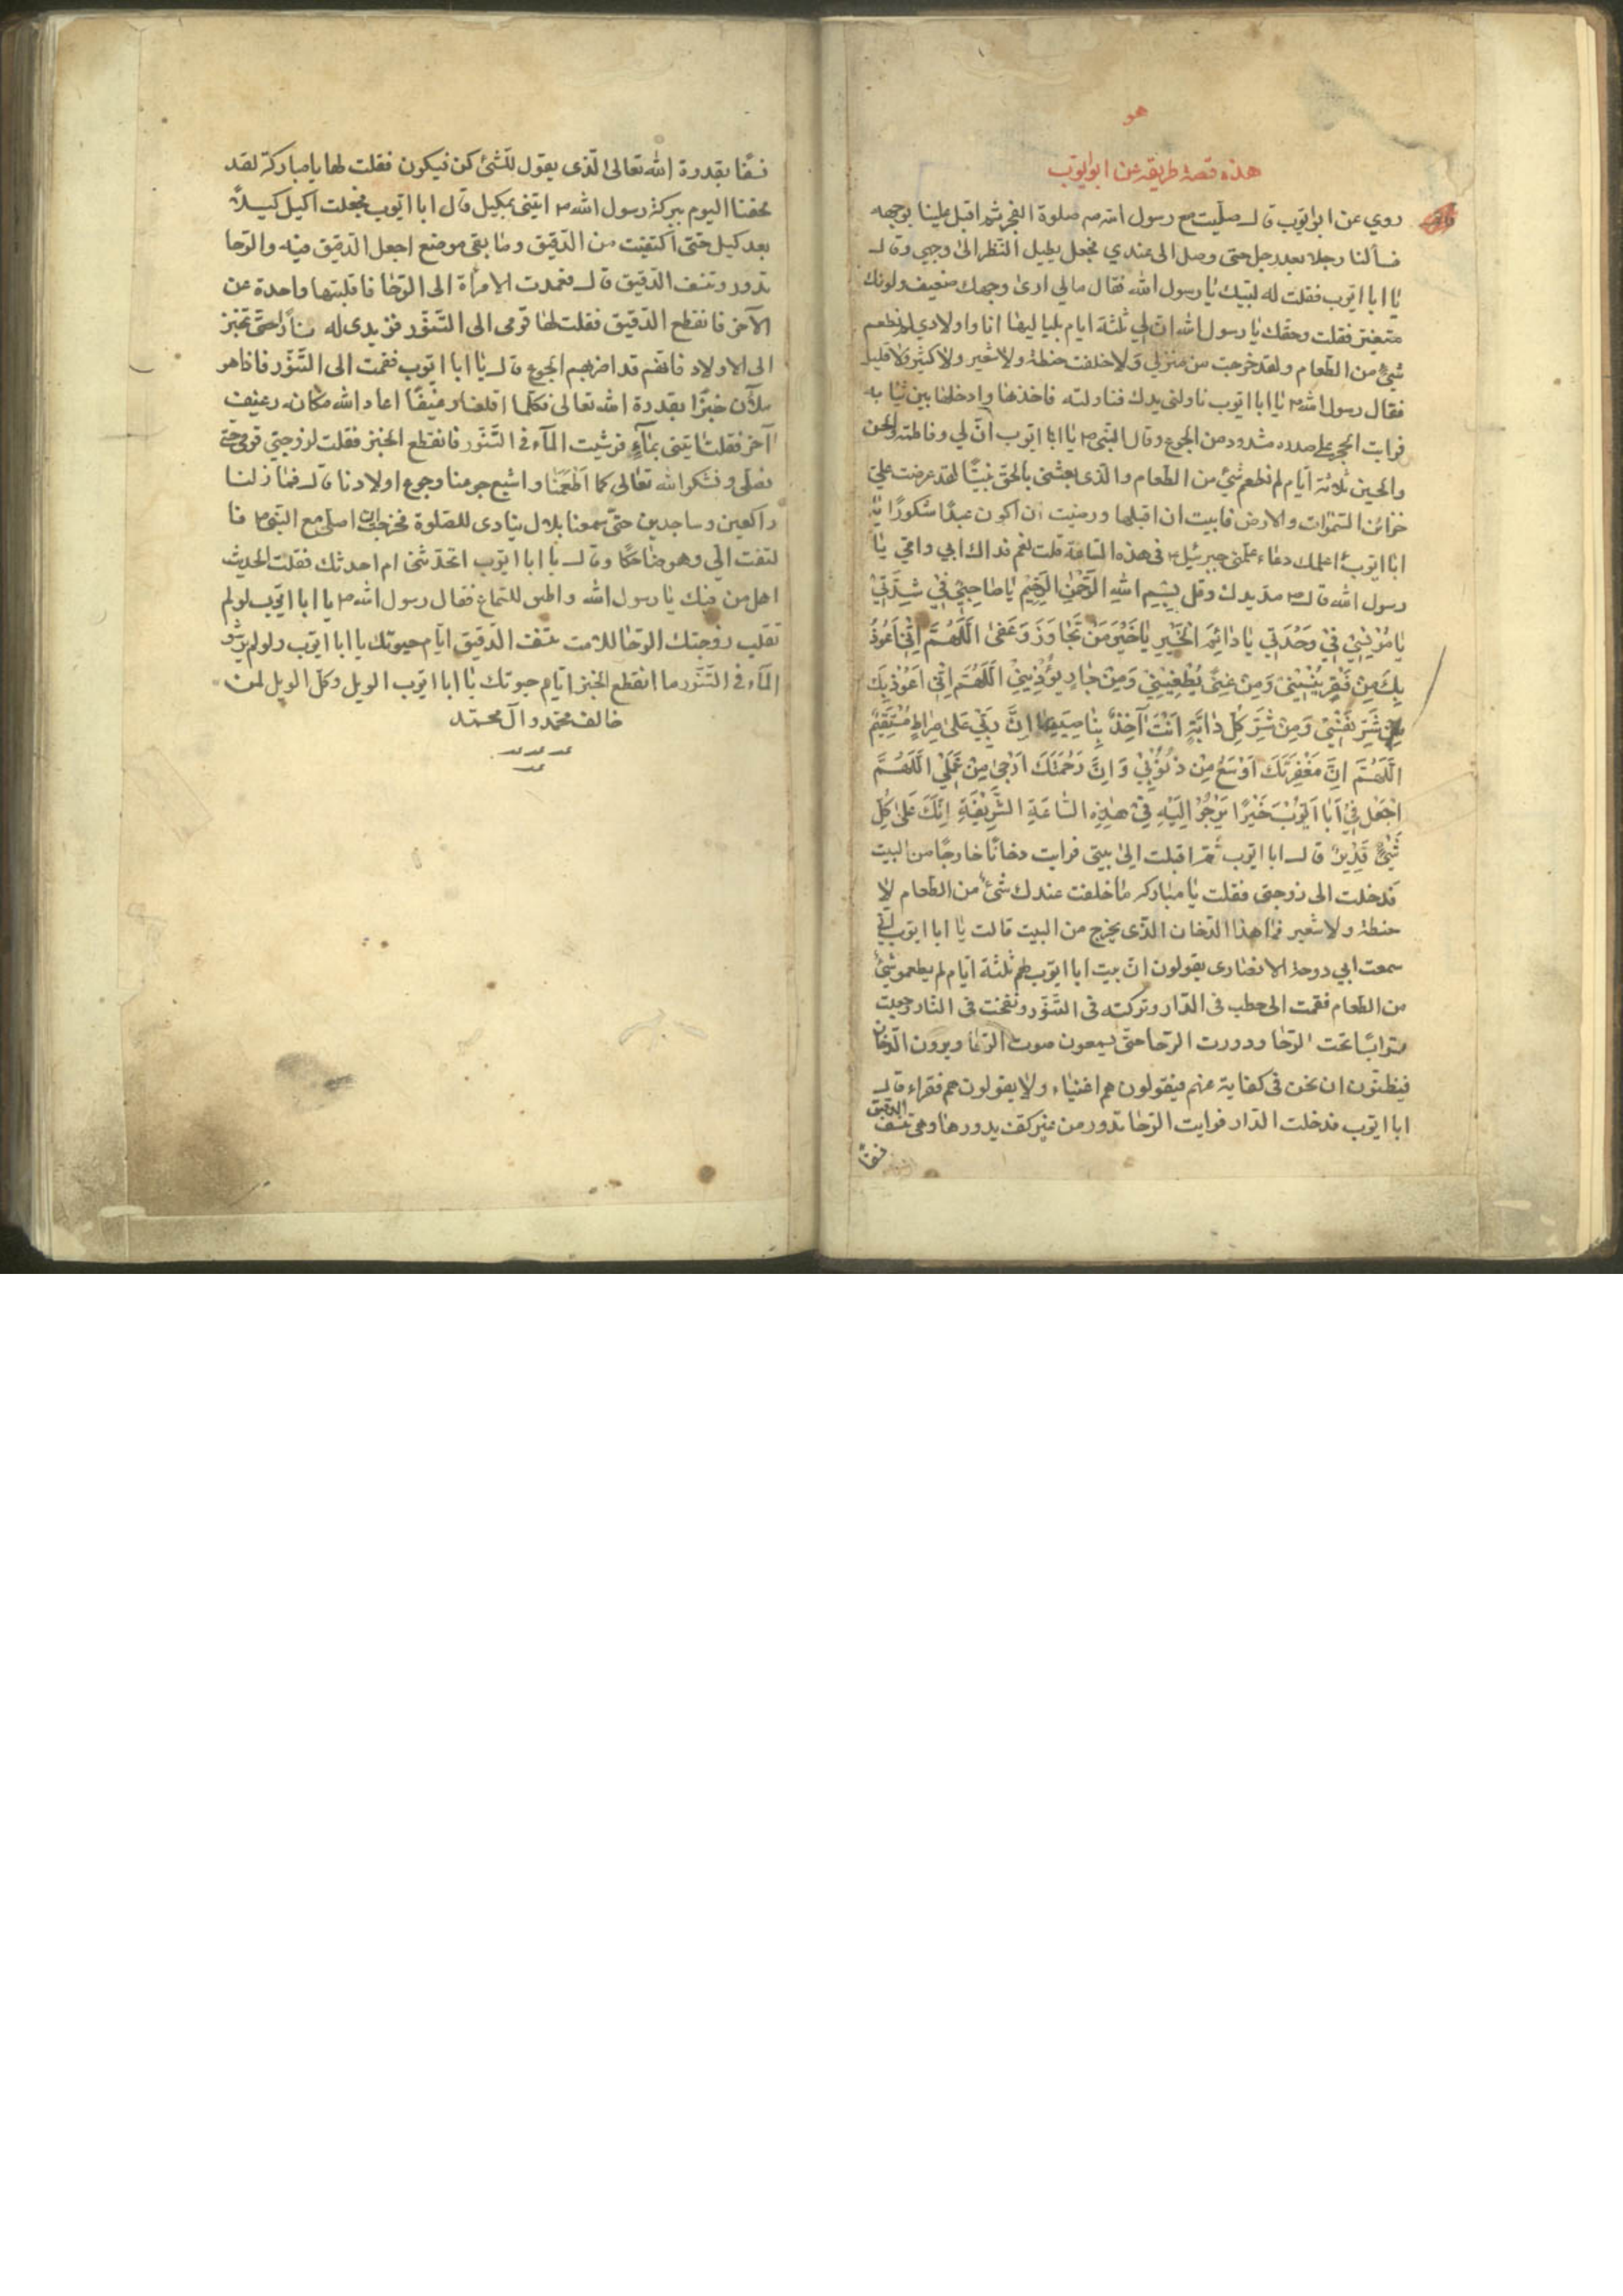 هو
هذه قصة طريقه عن ابو ايوب
روي عن ابو ايوب قالـ صليت مع رسول الله صه صلوة الفجر ثم اقبل علينا بوجهه
فسألنا رجلا بعد رجل حتى وصل الى عندي فجعل يطيل النظر الى وجهي وقالـ
يا ابا ايوب فقلت له لبيك يا رسول الله فقال مالي ارى وجهك ضعيف ولونك
متغير فقلت وحقك يا رسول الله ان لي ثلثة ايام بلياليها انا واولادي لم نطعم
شئ من الطعام ولقد خرجت من منزلي ولا خلفت حنطة ولا شعير ولا كثير ولا قليل
فقال رسول الله ص يا ابا ايوب ناولنى يدك فناولته فاخذها وادخلها بين ثيابه
فرايت الحجر على صدره مشدود من الجوع وقال النبى ص يا ابا ايوب ان لي وفاطمة والحسن
والحسين ثلاثة ايام لم نطعم شئ من الطعام والذى بعثنى بالحق نبيًا لقد عرضت علي
خزائن السموات والارض فابيت ان اقبلها ورضيت ان اكون عبدًا شكورًا يا
ابا ايوب اعلمك دعاء علمنى جبرئيل ع فى هذه الساعة قلت نعم فداك ابي وامي يا
رسول الله قالـ ص مد يدك وقل بِسْمِ اللهِ الرَّحْمٰنِ الرَّحِيْمِ يٰا صٰاحِبِيْ فِيْ شِدَّتِيْ
يٰا مُوْنِسِيْ فِيْ وَحْدَتِي يٰا دٰائِمَ الْخَيْرِ يٰا خَيْرَ مَنْ تَجٰاوَزَ وَعَفىٰ اَللّٰهُمَّ اِنِّيْ اَعُوْذُ
بِكَ مِنْ فَقْرٍ يُنْسِيْنِيْ وَمِنْ غِنىً يُطْغِيْنِيْ وَمِنْ جٰارٍ يُوْذِيْنِيْ اَللّٰهُمَّ اِنِّيْ اَعُوْذُ بِكَ
مِنْ شَرِّ نَفْسِيْ وَمِنْ شَرِّ كُلِّ دٰابَّةٍ اَنْتَ آخِذٌ بِنٰاصِيَتِهٰا اِنَّ رَبِّيْ عَلىٰ صِرٰاطٍ مُسْتَقِيْمٍ
اَللّٰهُمَّ اِنَّ مَغْفِرَتَكَ اَوْسَعُ مِنْ ذُنُوْبِيْ وَاِنَّ رَحْمَتَكَ اَرْجىٰ مِنْ عَمَلِيْ اَللّٰهُمَّ
اجْعَلْ فِيْ اَبٰا اَيُّوْبَ خَيْرًا يَرْجُوْ اِلَيْهِ فِيْ هٰذِهِ السّٰاعَةِ الشَّرِيْفَةِ اِنَّكَ عَلىٰ كُلِّ
شَيْئٍ قَدِيْرٌ قالـ ابا ايوب ثم اقبلت الى بيتى فرايت دخانًا خارجًا من البيت
فدخلت الى زوجتى فقلت يا مباركه ما خلفت عندك شئ من الطعام لا
حنطة ولا شعير فما هذا الدخان الذى يخرج من البيت قالت يا ابا ايوب انى
سمعت ابي دوحة الانصارى يقولون ان بيت ابا ايوب لهم ثلثة ايام لم يطعمو شئ
من الطعام فقمت الى حطب فى الدار وتركته فى التنور ونفخت فى النار وجعلت
ترابًا تحت الرحا ودورت الرحا حتى يسمعون صوت الرحا ويرون الدخان
فيظنون ان نحن فى كفاية عنهم فيقولون هم اغنياء ولا يقولون هم فقراء قالـ
ابا ايوب فدخلت الدار فرايت الرحا تدور من غير كف يدورها وهى تنسف الدقيق
نسفًا
نسفًا بقدرة الله تعالى الذى يقول للشئ كن فيكون فقلت لها يا مباركة لقد
لحقنا اليوم ببركة رسول الله ص ايتنى بمكيل قال ابا ايوب فجعلت اكيل كيلاً
بعد كيل حتى اكتفيت من الدقيق وما بقى موضع اجعل الدقيق فيه والرحا
تدور وتنسف الدقيق قالـ فعمدت الامرأة الى الرحا فاقلبتها واحدة عن
الآخر فانقطع الدقيق فقلت لها قومى الى التنور فزيدى له نارًا حتى تخبز
الى الاولاد فانهم قد اضربهم الجوع قالـ يا ابا ايوب فقمت الى التنور فاذا هو
ملآن خبزًا بقدرة الله تعالى فكلما اقلعنا رغيفًا اعاد الله مكانه رغيف
آخر فقلت ايتنى بمآءٍ فرشيت المآء فى التنور فانقطع الخبز فقلت لزوجتي قومى حتى
نصلى ونشكر الله تعالى كما اطعمنا واشبع جوعنا وجوع اولادنا قالـ فما زلنا
راكعين وساجدين حتى سمعنا بلال ينادى للصلوة فخرجت الى اصلى مع النبى ص فا
لتفت الي وهو ضاحكًا وقالـ يا ابا ايوب اتحدثنى ام احدثك فقلت الحديث
احل من فيك يا رسول الله واطيب للسماع فقال رسول الله ص يا ابا ايوب لو لم
تقلب زوجتك الرحا للامت تنسف الدقيق ايام حيوتك يا ابا ايوب ولو لم يرشو
المآء فى التنور ما انقطع الخبز ايام حيوتك يا ابا ايوب الويل وكل الويل لمن
خالف محمد وآل محمد